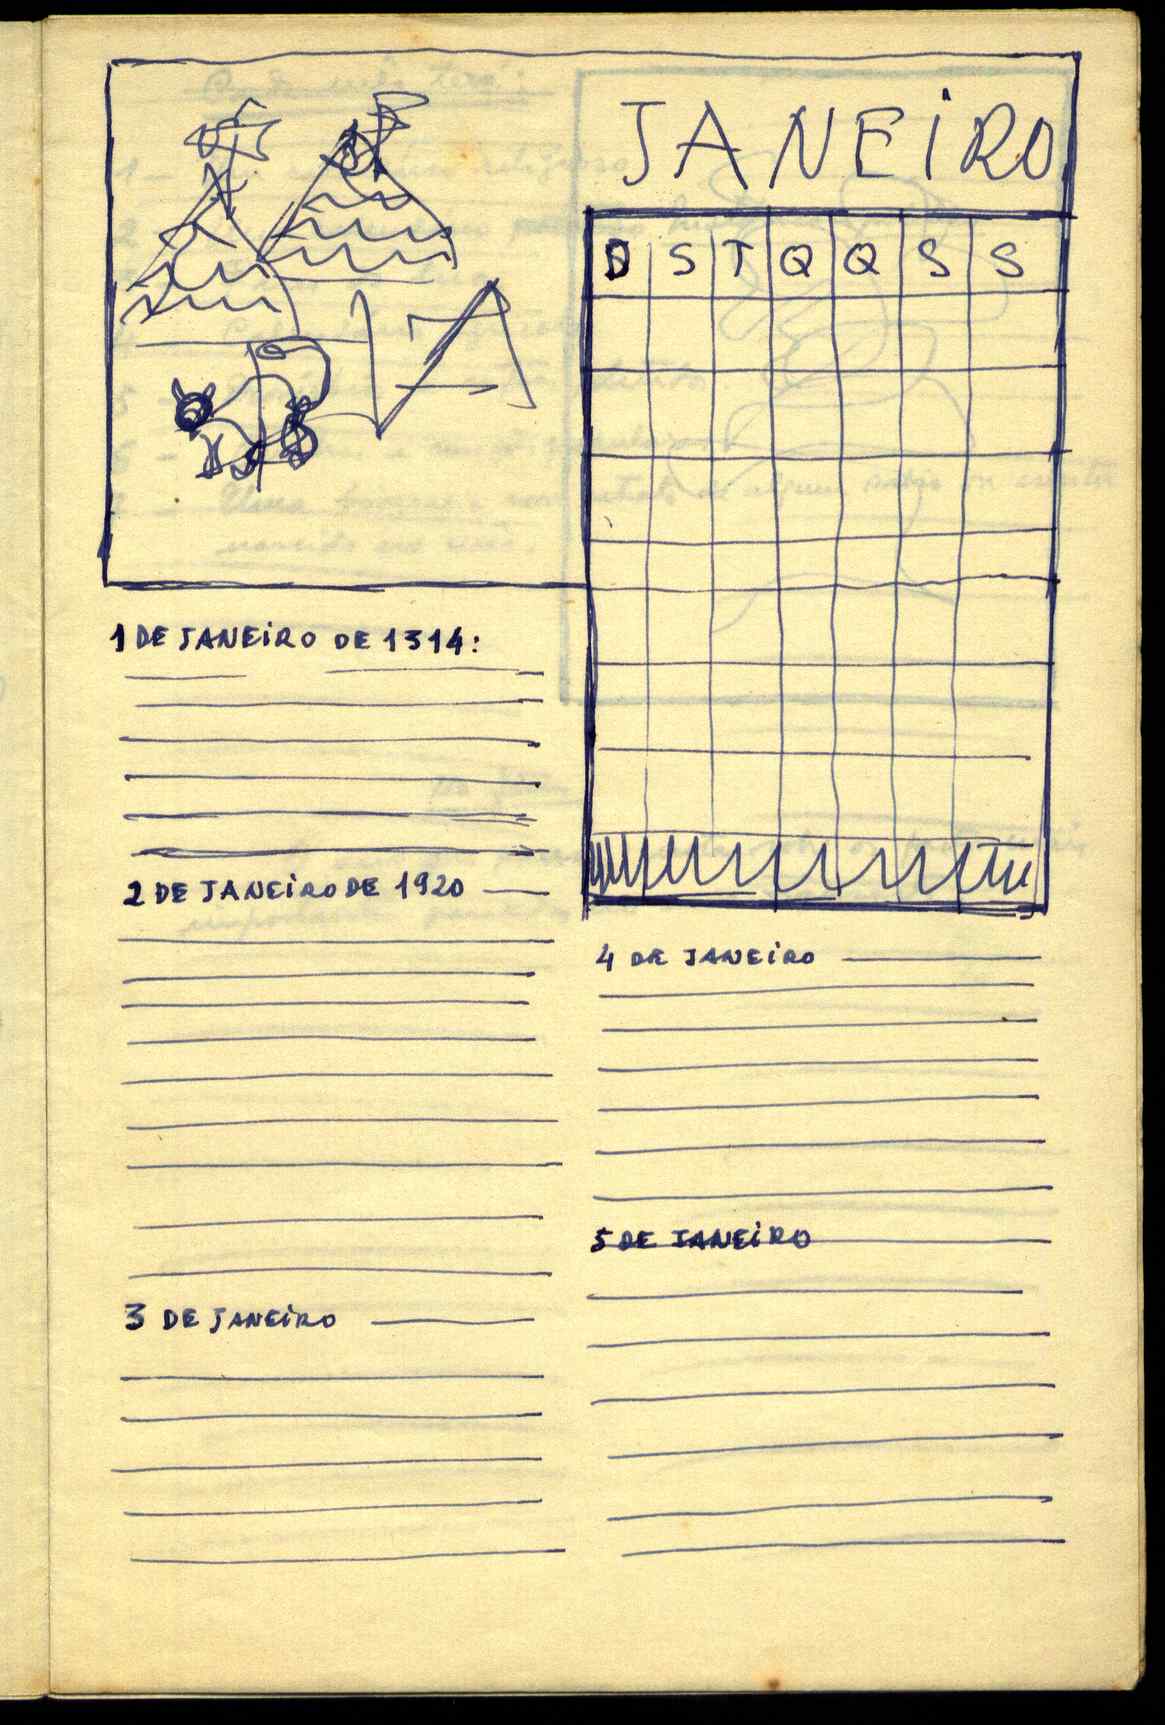 JANEIRO
D S T Q Q S S
1 DE JANEIRO DE 1314:
2 DE JANEIRO DE 1920
3 DE JANEIRO
4 DE JANEIRO
5 DE JANEIRO